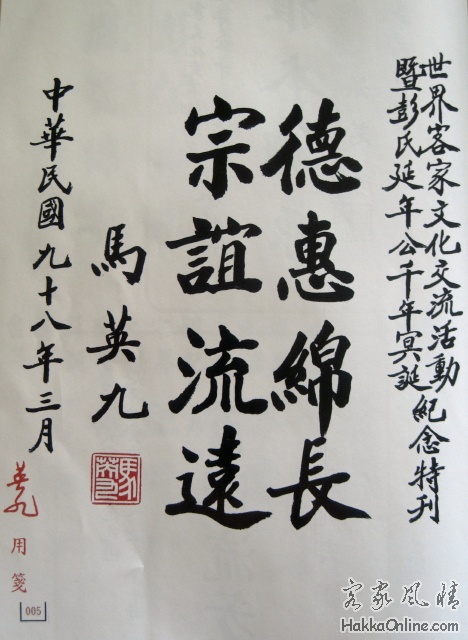 世界客家文化交流活動紀念特刊
暨彭氏延年公千年冥誕
德惠綿長
宗誼流遠
馬英九
馬英九
中華民國九十八年三月
英九用箋
005
客家風情
HakkaOnline.com